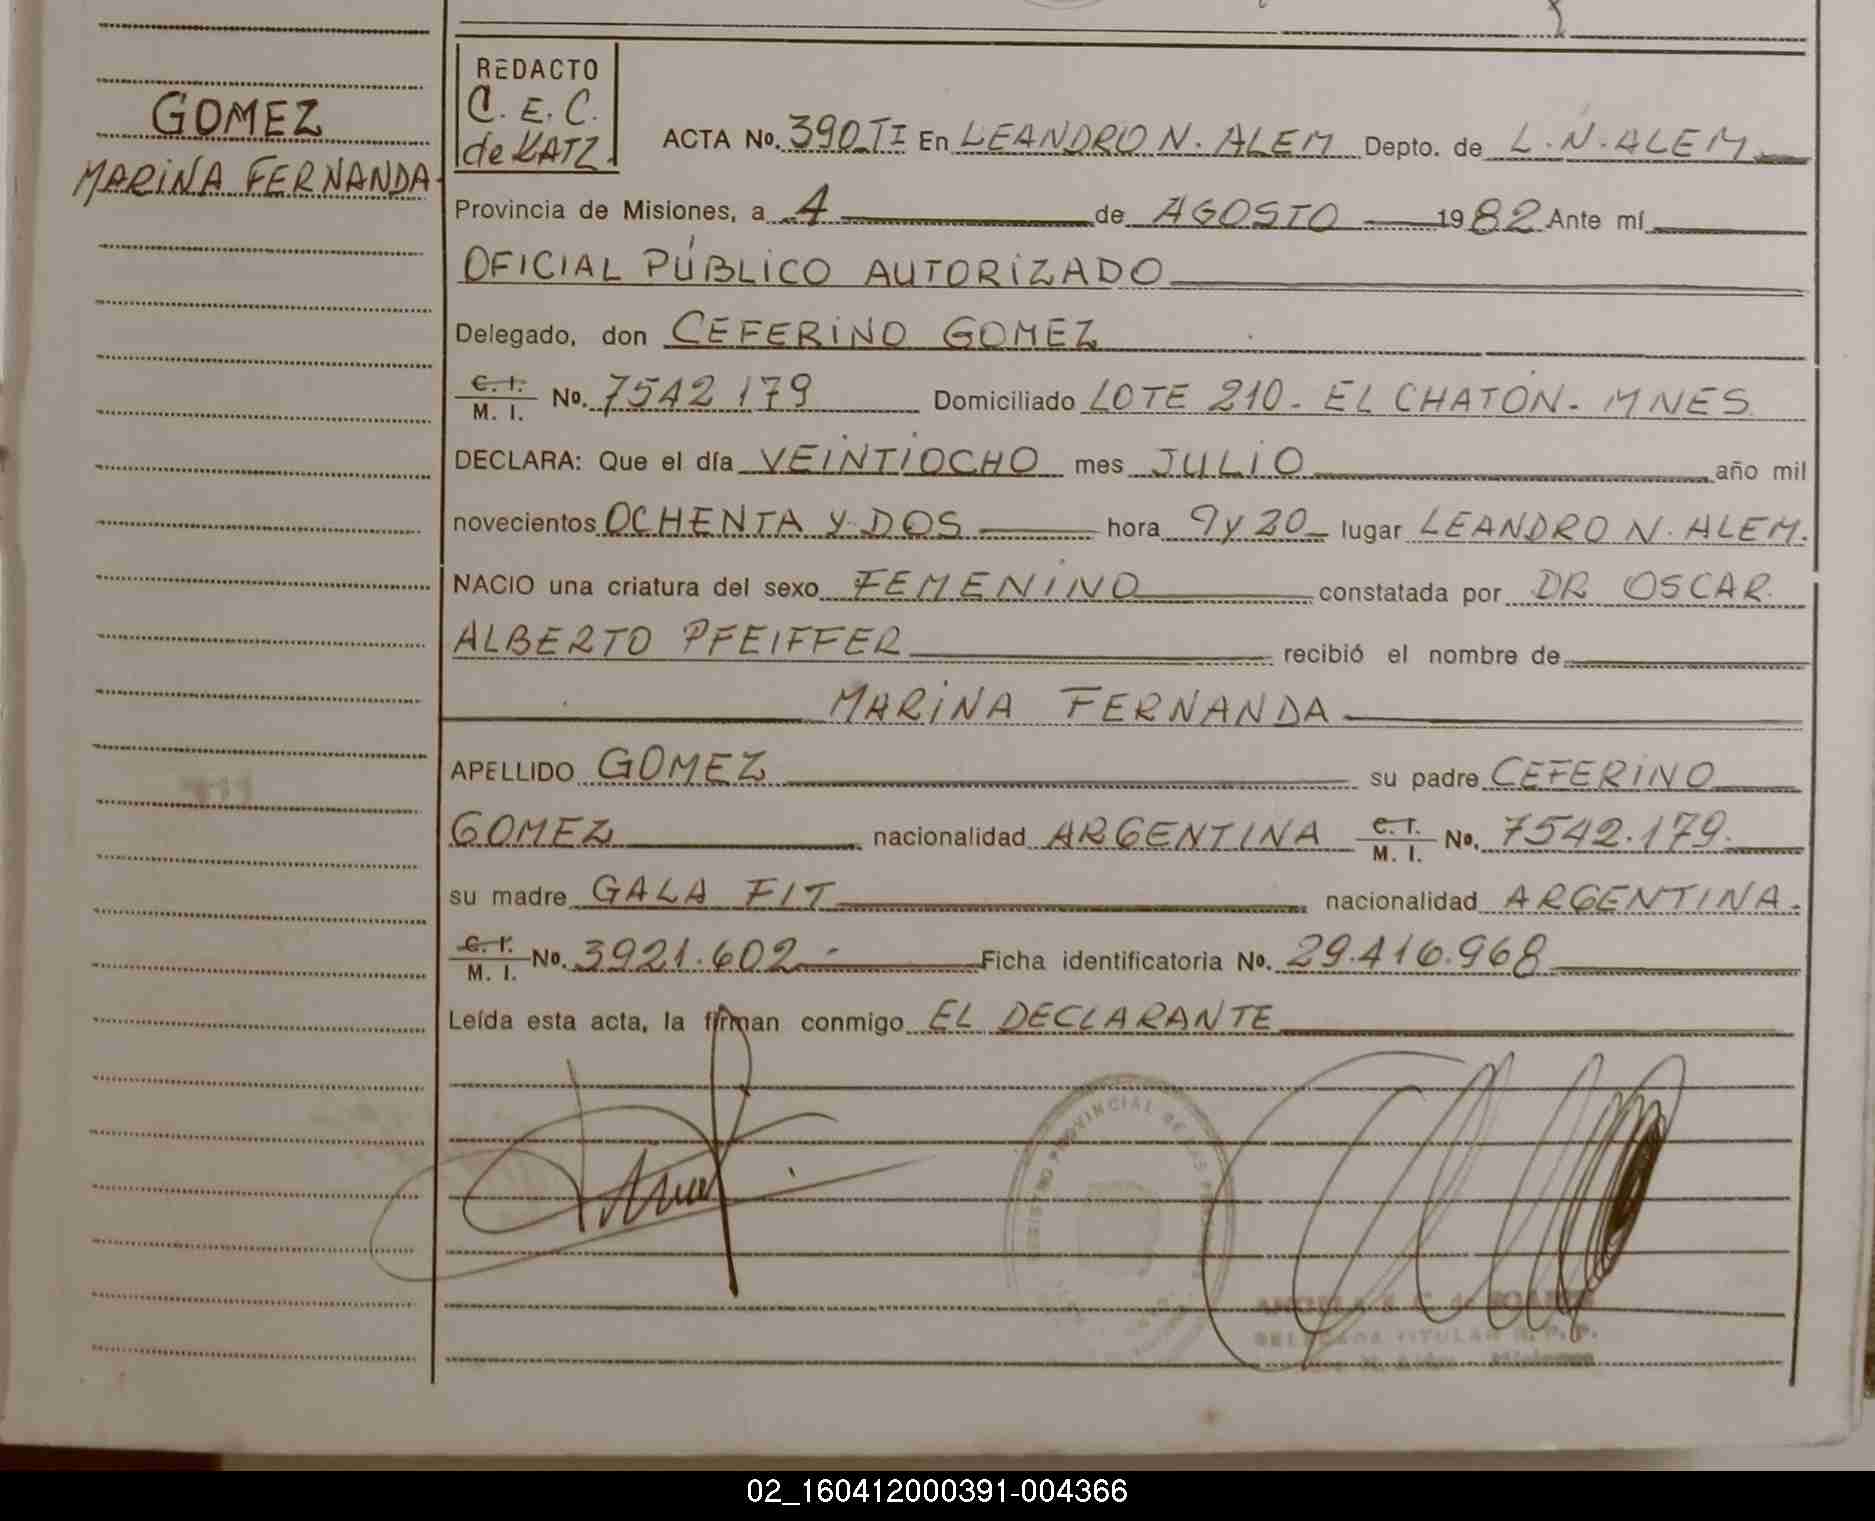 GOMEZ
MARINA FERNANDA
REDACTO
C. E. C.
de KATZ
ACTA No. 390 TI En LEANDRO N. ALEM Depto. de L. N. ALEM
Provincia de Misiones, a 4 de AGOSTO 1982 Ante mí
OFICIAL PÚBLICO AUTORIZADO
Delegado, don CEFERINO GOMEZ
C. I. M. I. No. 7542179 Domiciliado LOTE 210 - EL CHATÓN - MNES
DECLARA: Que el día VEINTIOCHO mes JULIO año mil
novecientos OCHENTA Y DOS hora 9 y 20 lugar LEANDRO N. ALEM.
NACIO una criatura del sexo FEMENINO constatada por DR OSCAR
ALBERTO PFEIFFER recibió el nombre de
MARINA FERNANDA
APELLIDO GOMEZ su padre CEFERINO
GOMEZ nacionalidad ARGENTINA C. I. M. I. No. 7542.179
su madre GALA FIT nacionalidad ARGENTINA.
C. I. M. I. No. 3921.602 - Ficha identificatoria No. 29.416.968
Leída esta acta, la firman conmigo EL DECLARANTE
REGISTRO PROVINCIAL DE LAS
DELEGADA TITULAR R. P. P.
Misiones
02_160412000391-004366